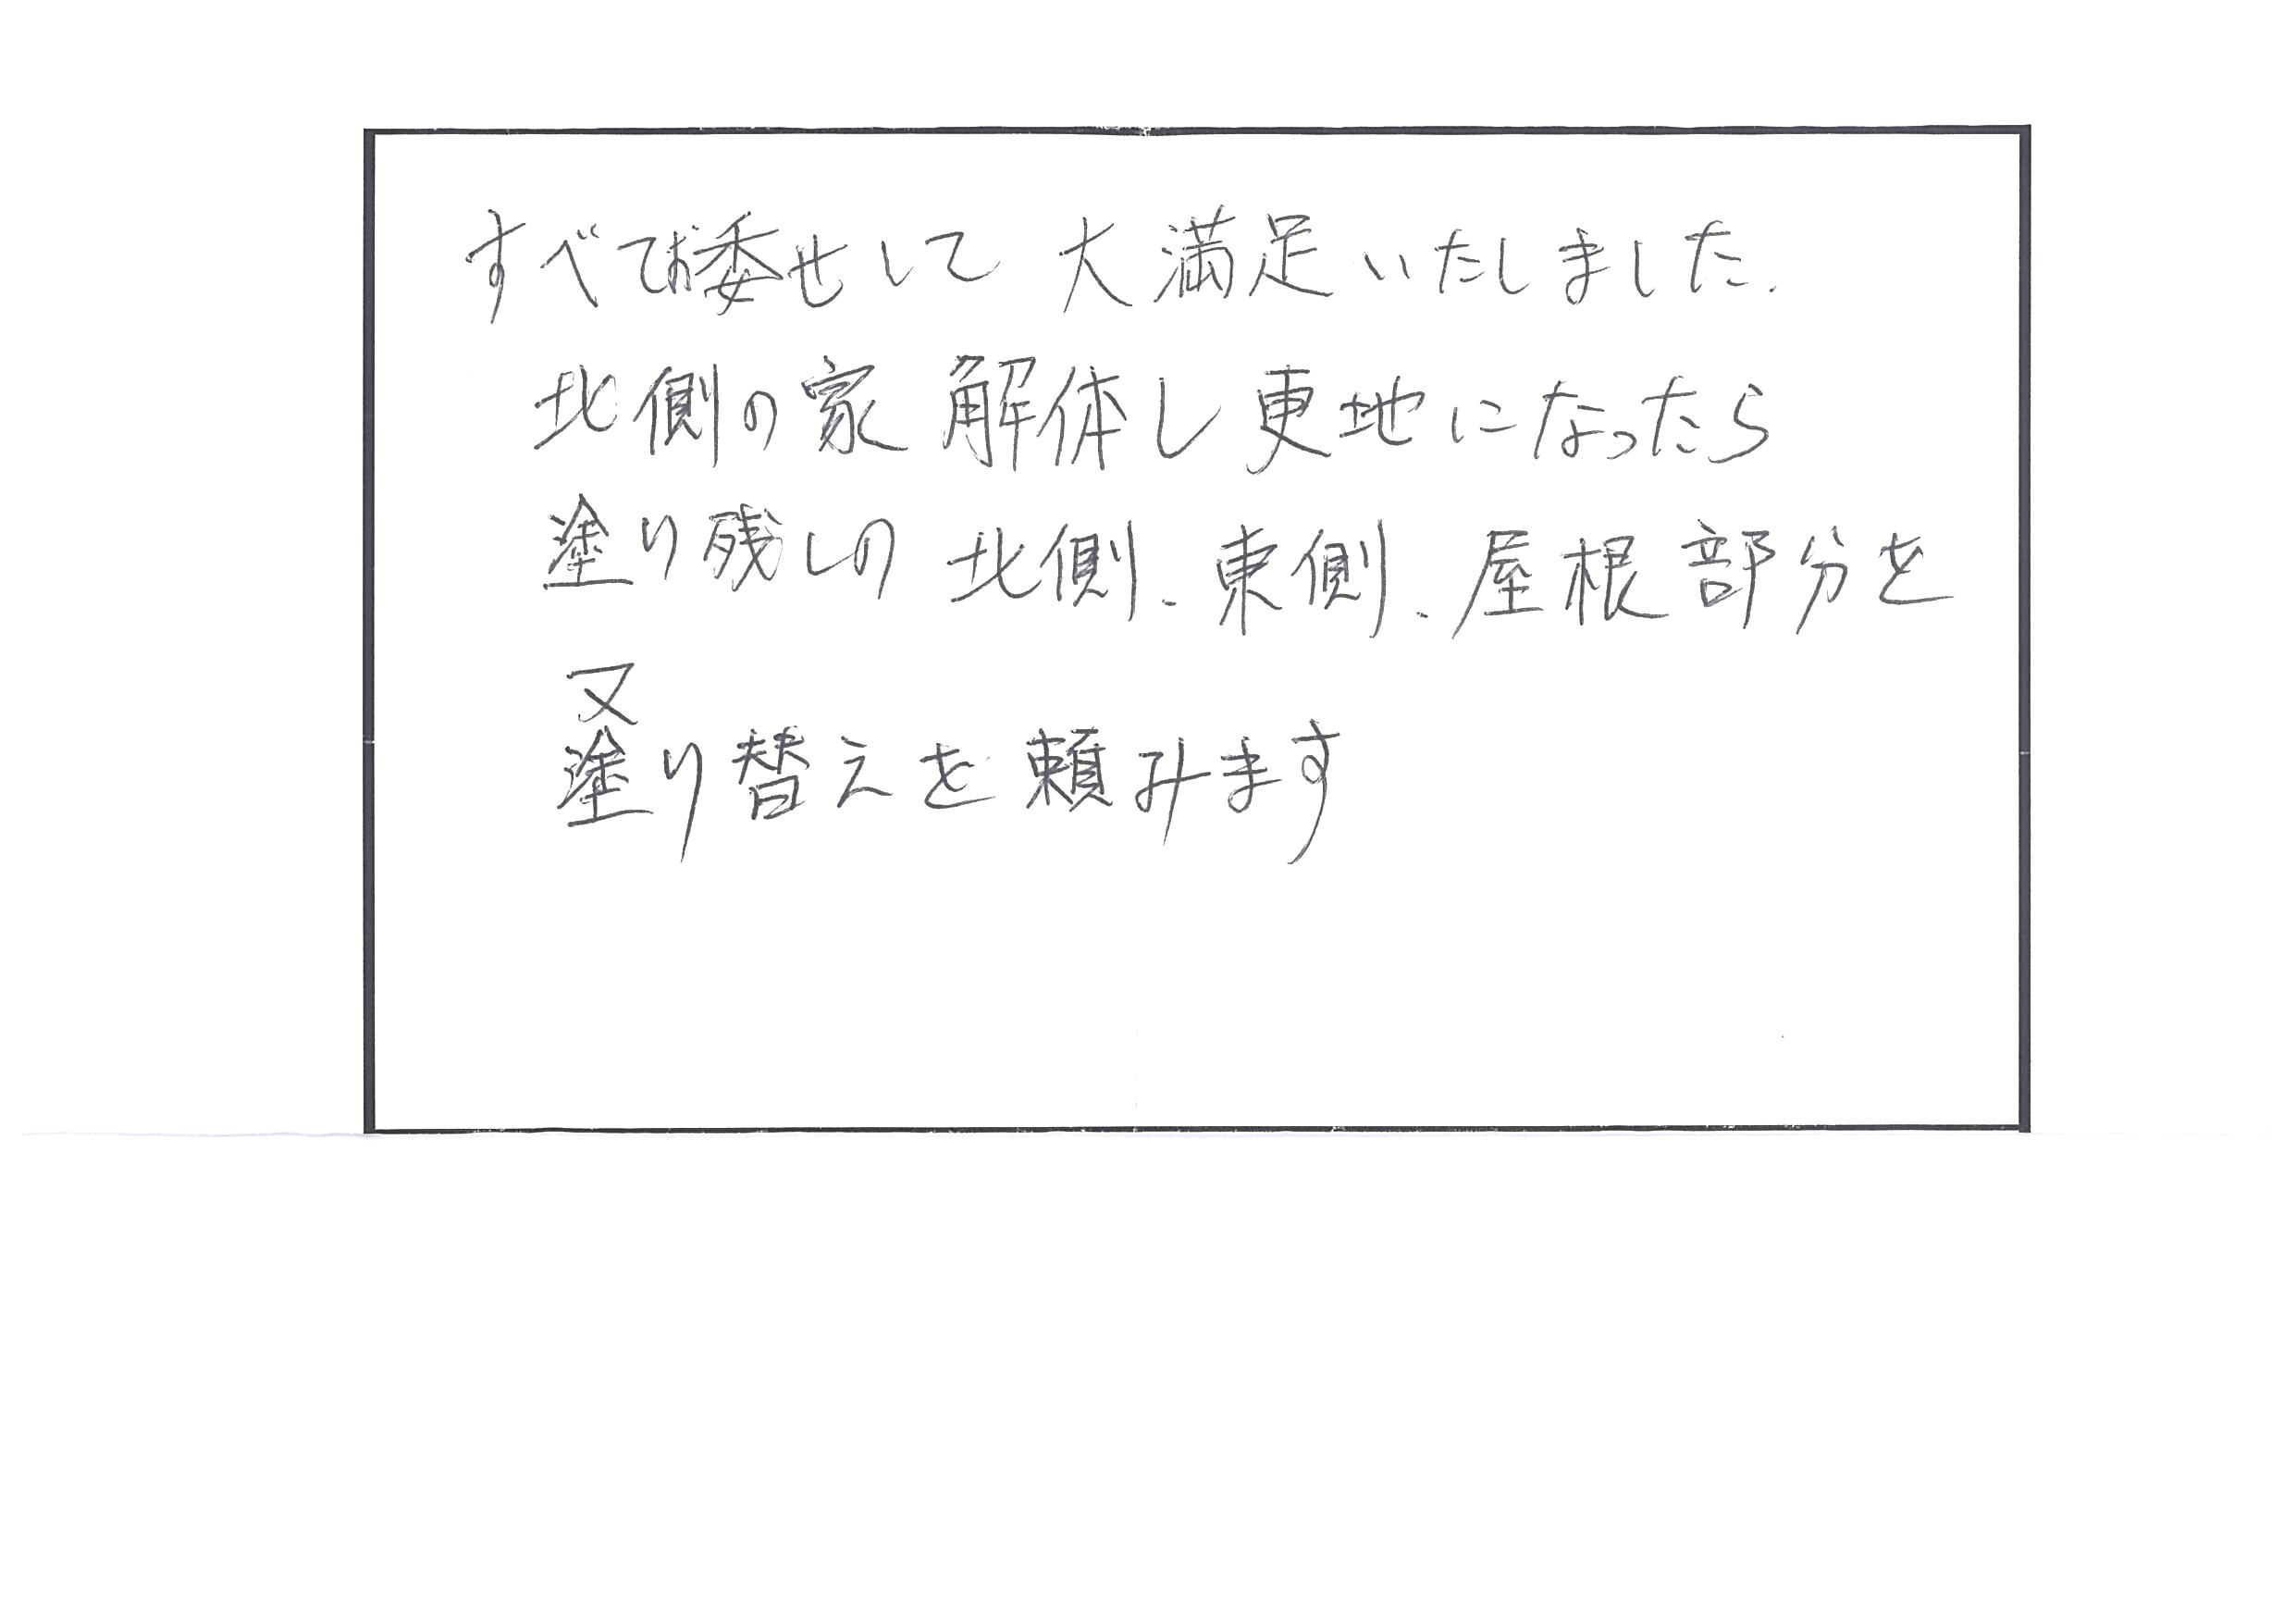 すべてお委せして 大満足いたしました.
北側の家 解体し更地になったら
塗り残しの 北側、東側、屋根部分を
又
塗り替えを頼みます